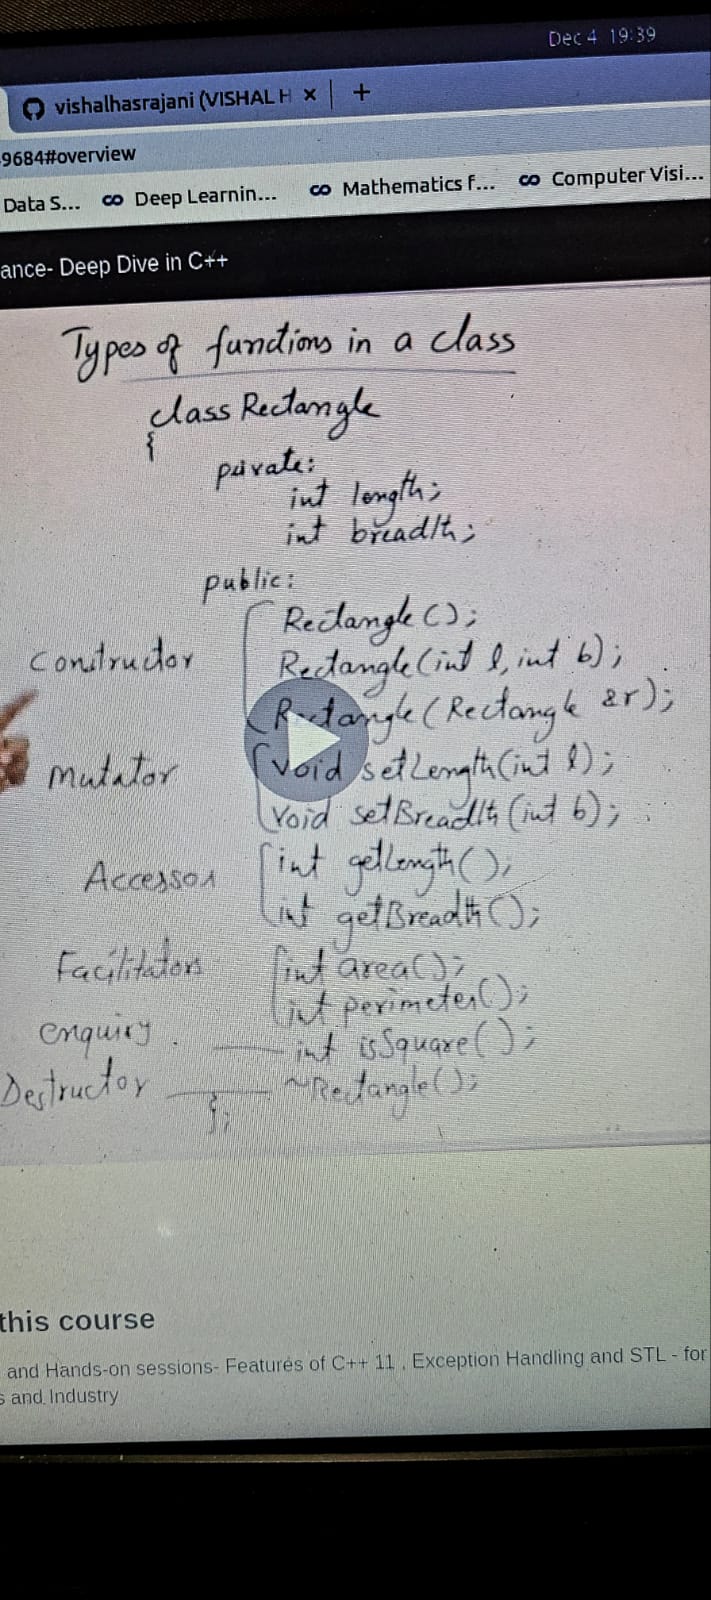 Dec 4 19:39
vishalhasrajani (VISAHL H × +
9684#overview
Data S... Deep Learnin... Mathematics f... Computer Visi...
ance- Deep Dive in C++
Types of functions in a class
class Rectangle
{
private:
int length;
int breadth;
public:
Rectangle();
Constructor Rectangle(int l, int b);
Rectangle(Rectangle &r);
Mutator void setLength(int l);
void setBreadth(int b);
Accessor int getLength();
int getBreadth();
Facilitators int area();
int perimeter();
enquiry int isSquare();
Destructor ~Rectangle();
};
this course
and Hands-on sessions- Features of C++ 11 , Exception Handling and STL - for
s and Industry